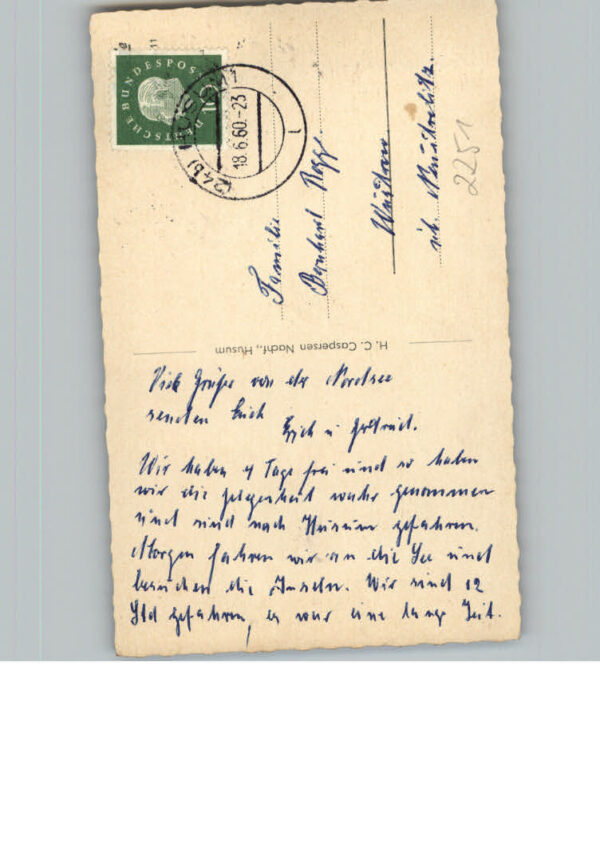 DEUTSCHE BUNDESPOST
10
(24b) HUSUM
18.6.60.-23
Familie
Bernhard
2251
H. C. Caspersen Nachf., Husum
Viele Grüße von der Nordsee
senden Euch
Erich u Gertrud.
Wir haben 4 Tage frei und so haben
wir die gelegenheit wahr genommen
und sind nach Husum gefahren.
Morgen fahren wir an die See und
besuchen die Inseln. Wir sind 12
Std gefahren, es war eine lange Zeit.